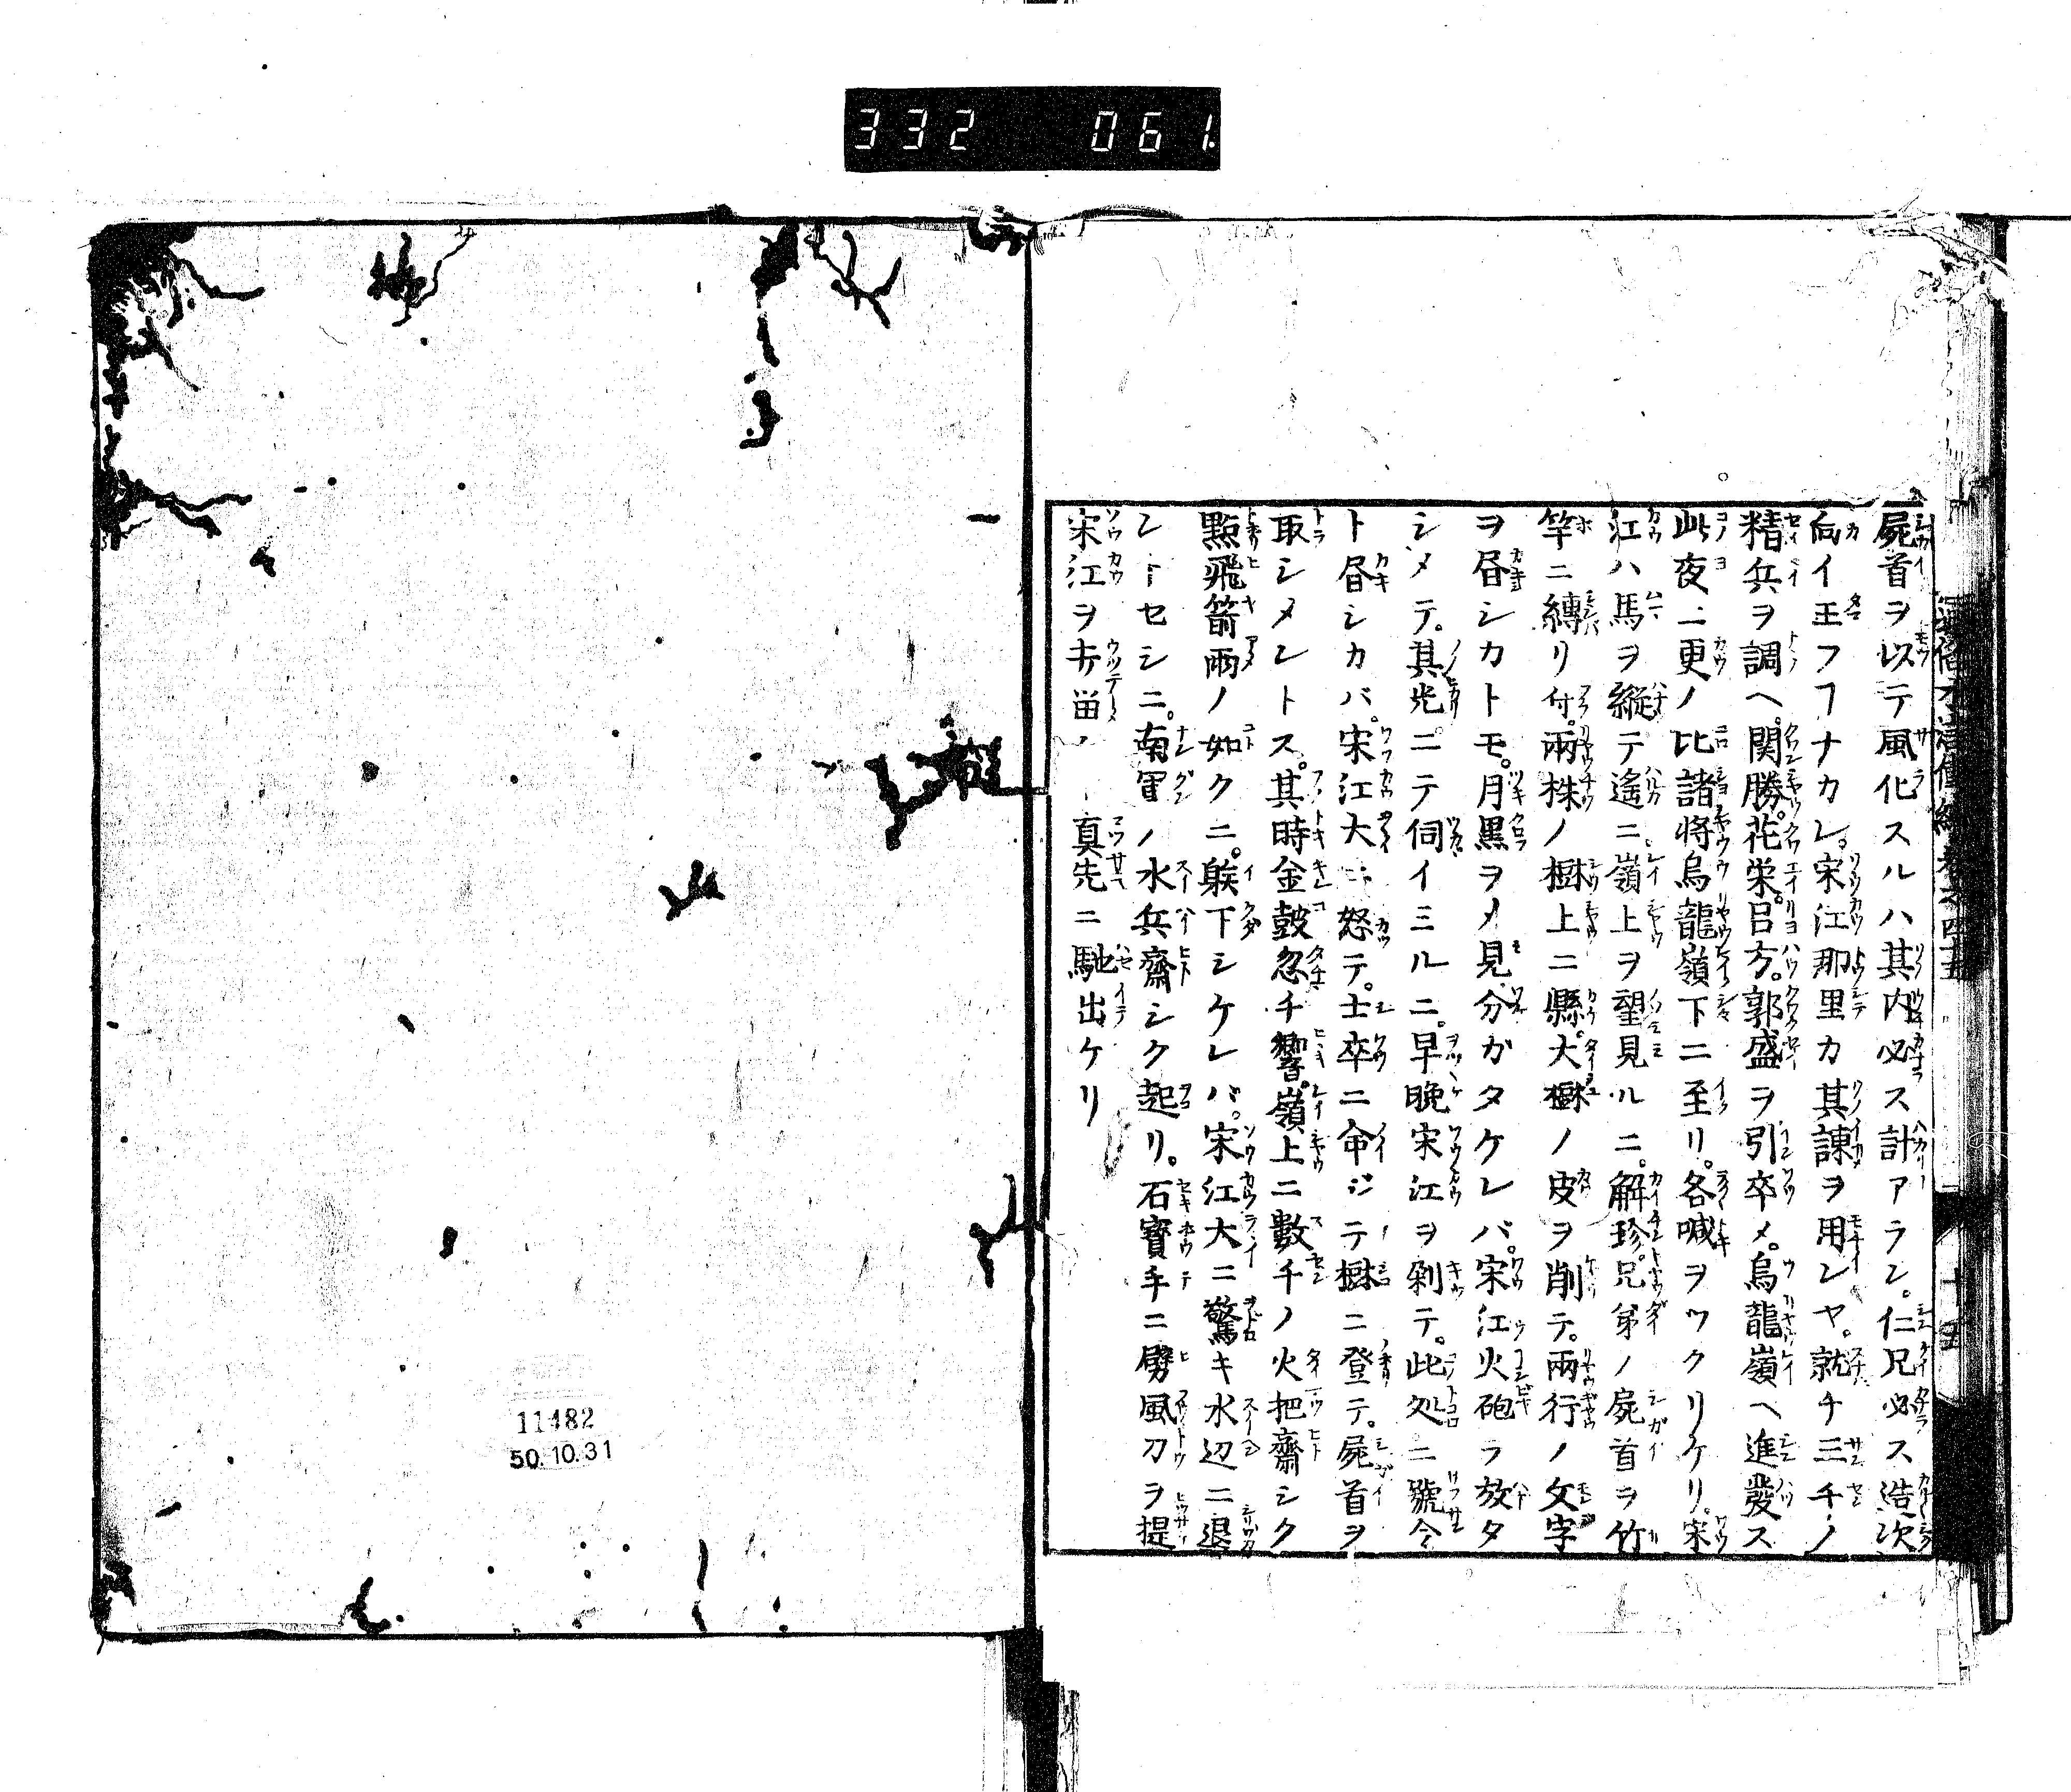 332 061.
屍首ヲ以テ風化スルハ其内必ス計アラン。仁兄必ス造次ニ
向イ玉フコナカレ。宋江那里カ其諫ヲ用ンヤ。就チ三千ノ
精兵ヲ調ヘ。関勝。花栄。呂方。郭盛ヲ引卒メ。烏龍嶺ヘ進發ス
此夜二更ノ比諸将烏龍嶺下ニ至リ。各喊ヲツクリケリ。宋
江ハ馬ヲ縦テ遙ニ嶺上ヲ望見ルニ。解珍。兄弟ノ屍首ヲ竹
竿ニ縛リ付。兩株ノ樹上ニ縣。大樹ノ皮ヲ削テ。兩行ノ文字
ヲ昏シカトモ。月黒ヲメ見分ガタケレバ。宋江火砲ヲ放タ
シメテ。其光ニテ伺イミルニ。早晩宋江ヲ剁テ。此処ニ號令
ト昏シカバ。宋江大ニ怒テ。士卒ニ命ジテ樹ニ登テ。屍首ヲ
取シメントス。其時金鼓忽チ響。嶺上ニ數千ノ火把齋シク
點飛箭雨ノ如クニ。躾下シケレバ。宋江大ニ驚キ水辺ニ退
ントセシニ。南軍ノ水兵齋シク起リ。石寳手ニ劈風刀ヲ提
宋江ヲ討畄 真先ニ馳出ケリ
十五
11482
50.10.31